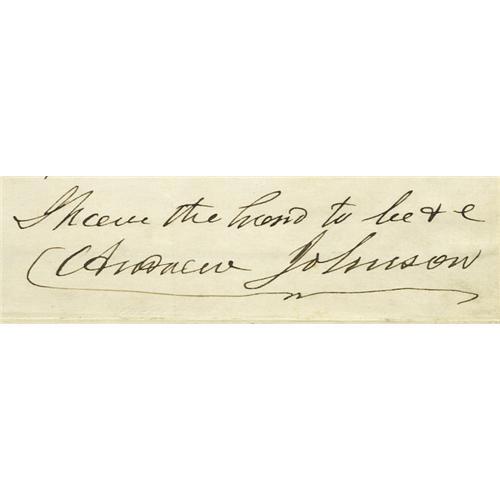 I have the honor to be &c
Andrew Johnson